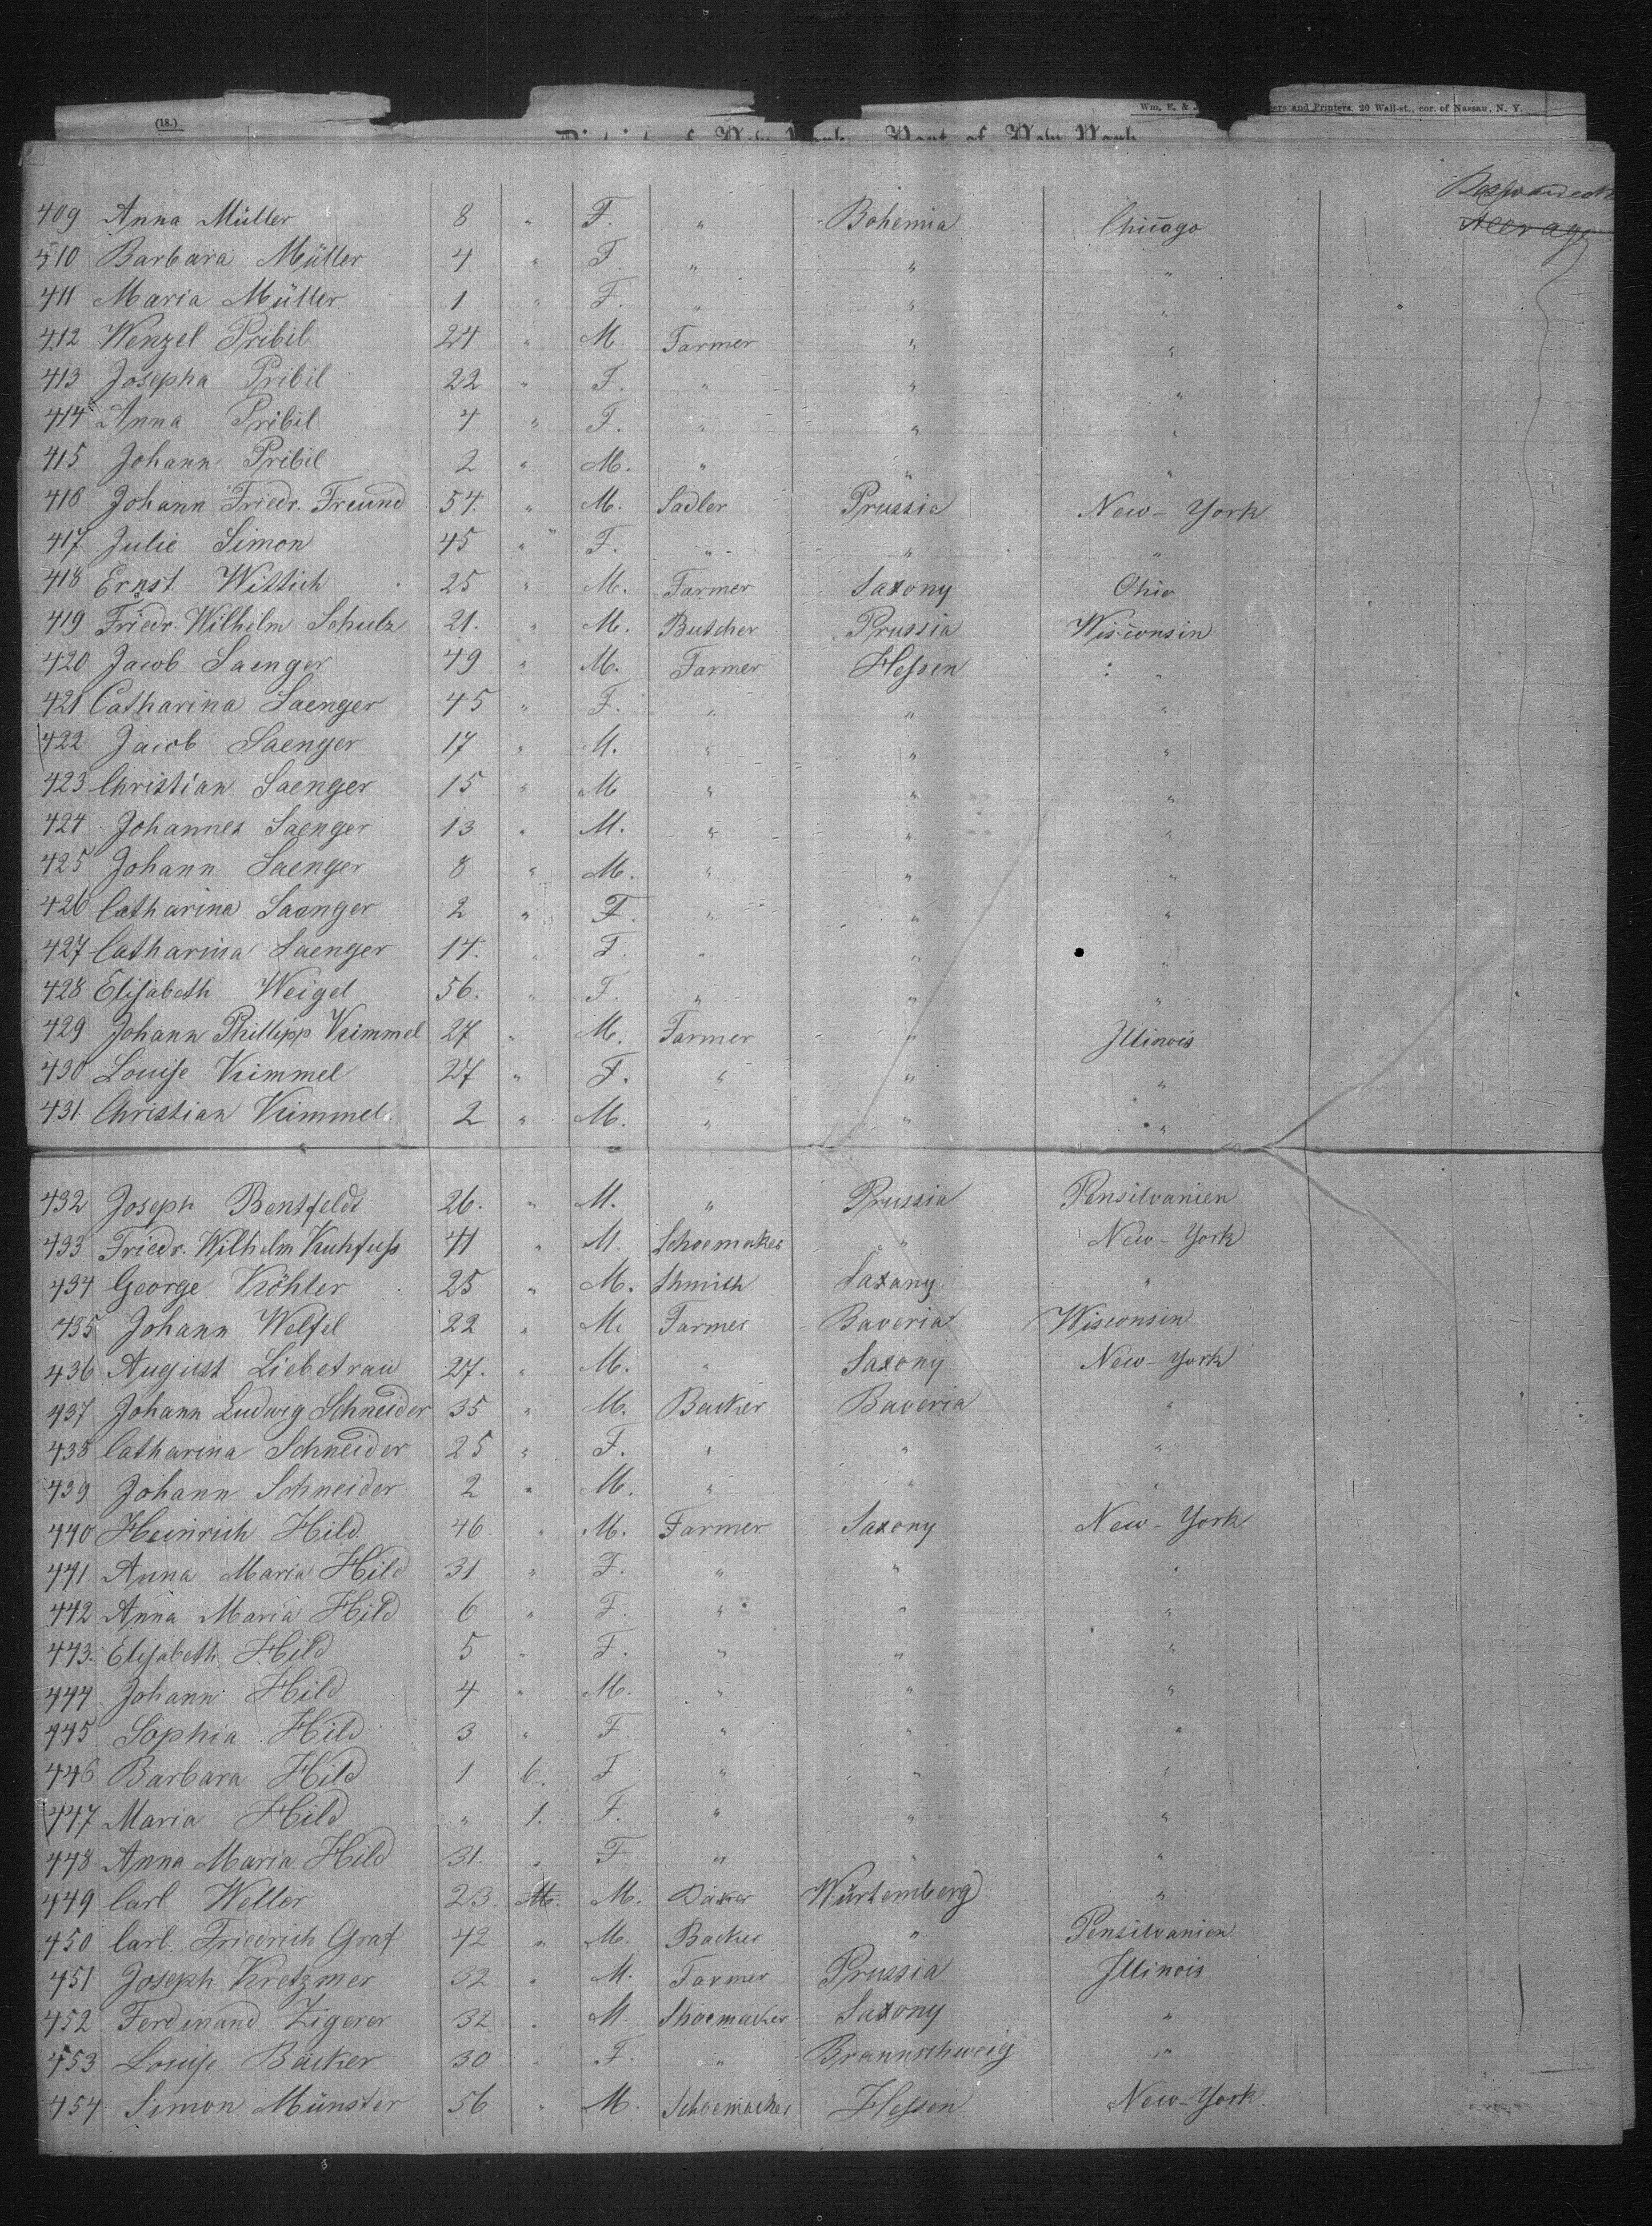 (18.)
Wm. E. & ers and Printers, 20 Wall-st., cor. of Nassau, N. Y.
District of New York Port of New York
409 Anna Müller 8 " F. " Bohemia Chicago
410 Barbara Müller 4 " F. " " "
411 Maria Müller 1 " F. " " "
412 Wenzel Pribil 24 " M. Farmer " "
413 Josepha Pribil 22 " F. " " "
414 Anna Pribil 4 " F. " " "
415 Johann Pribil 2 " M. " " "
416 Johann Friedr. Freund 54. " M. Sadler Prussia New-York
417 Julie Simon 45 " F. " " "
418 Ernst Wittich 25 " M. Farmer Saxony Ohio
419 Friedr. Wilhelm Schulz 21. " M. Butcher Prussia Wisconsin
420 Jacob Saenger 49 " M. Farmer Hessen "
421 Catharina Saenger 45 " F. " " "
422 Jacob Saenger 17 " M. " " "
423 Christian Saenger 15 " M " " "
424 Johannes Saenger 13 " M. " " "
425 Johann Saenger 8 " M. " " "
426 Catharina Saenger 2 " F. " " "
427 Catharina Saenger 14. " F. " " "
428 Elisabeth Weigel 56. " F. " " "
429 Johann Phillipp Kimmel 27 " M. Farmer " Illinois
430 Louise Kimmel 27 " F. " " "
431. Christian Kimmel. 2 " M. " " "
432 Joseph Bentfeldt 26. " M. " Prussia Pensilvanien
433 Friedr. Wilhelm Kuhfuss 41 " M. Schoemaker " New-York
434 George Köhler 25 " M. Shmith Saxany "
435 Johann Welfel 22 " M. Farmer Baveria Wisconsin
436 August Liebetrau 27. " M. " Saxony New-York
437 Johann Ludwig Schneider 35 " M. Backer Baveria "
438 Catharina Schneider 25 " F. " " "
439 Johann Schneider 2 " M. " " "
440 Heinrich Hild 46 " M. Farmer Saxony New-York
441. Anna Maria Hild 31 " F. " " "
442 Anna Maria Hild 6 " F. " " "
443. Elisabeth Hild 5 " F. " " "
444 Johann Hild 4 " M. " " "
445 Sophia Hild 3 " F " " "
446 Barbara Hild 1 6. F " " "
447 Maria Hild " 1. F. " " "
448 Anna Maria Hild 31. " F " " "
449 Carl Weller 23. M. M. Würtemberg "
450 Carl Friedrich Graf 42 " M. Backer " Pensilvanien
451 Joseph Kretzmer 32 " M. Farmer Prussia Illinois
452 Ferdinand Zigerer 32 " M. Shoemacker Saxony "
453 Louise Bäcker 30 " F. " Braunschweig "
454 Simon Münster 56 " M. Schoemacher Hessen New-York.